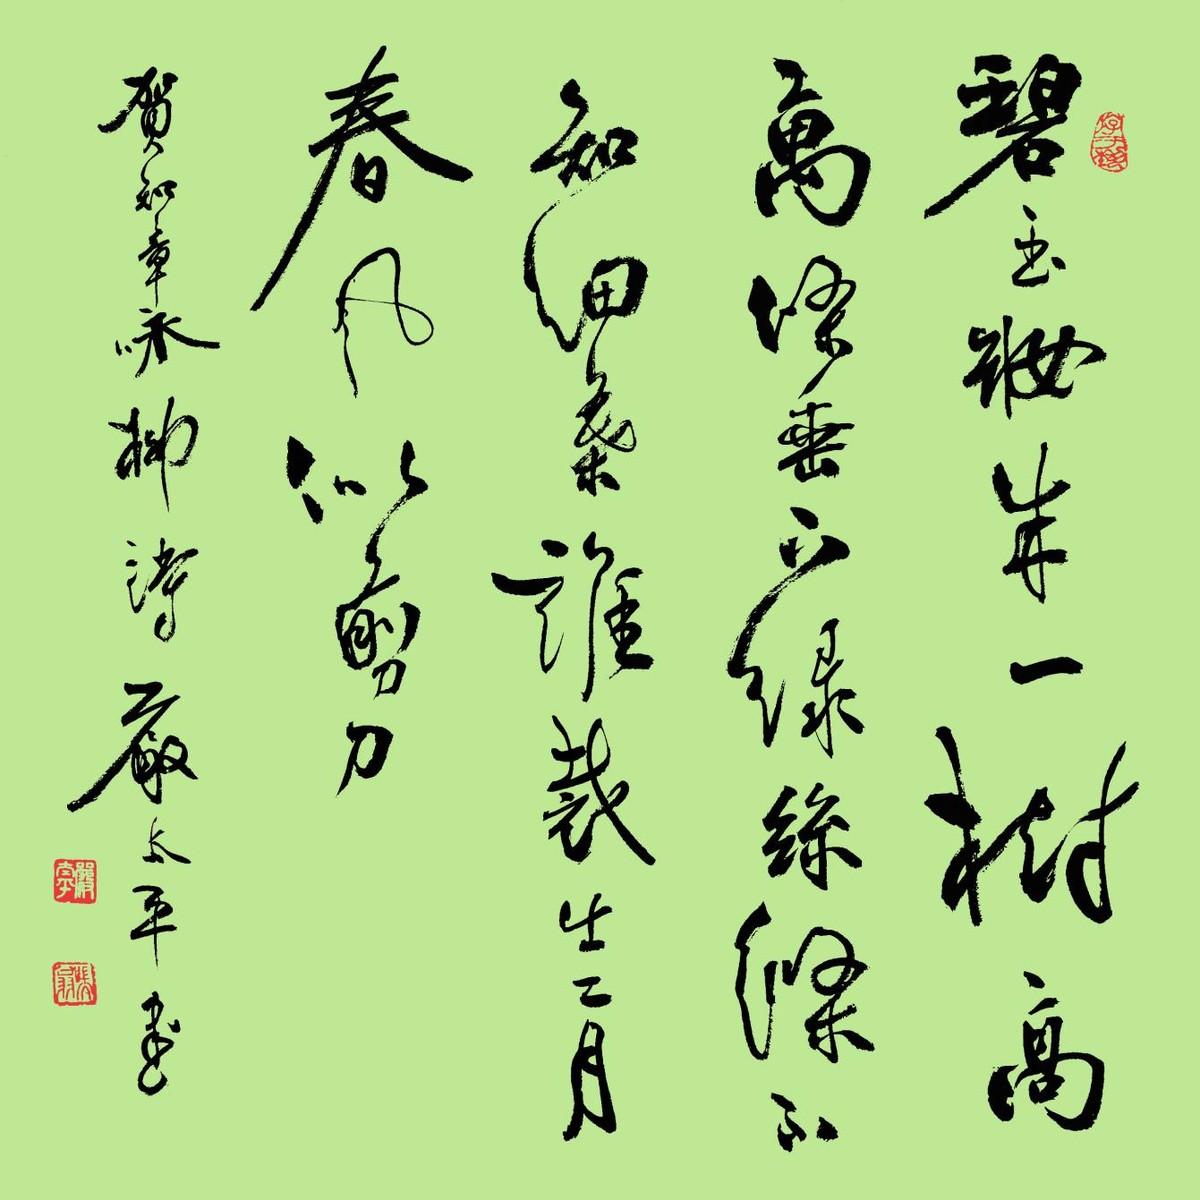 碧玉妝成一樹高
萬條垂下綠絲縧不
知細葉誰裁出二月
春風似剪刀
賀知章咏柳詩嚴太平書